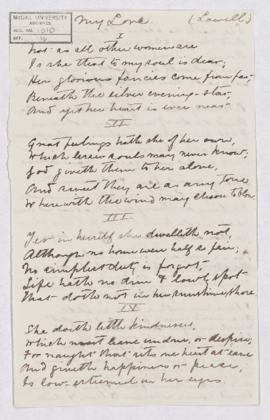 McGILL UNIVERSITY
ARCHIVES
ACC. NO. 1010
REF. 16
My Love. (Lowell)
I
Not as all other women are
Is she that to my soul is dear;
Her glorious fancies come from far
Beneath the silver evening-star,
And yet her heart is ever near.
II
Great feelings hath she of her own,
Which lesser souls may never know;
God giveth them to her alone,
And sweet they are as any tone
Wherewith the wind may choose to blow.
III
Yet in herself she dwelleth not,
Although no home were half so fair;
No simplest duty is forgot,
Life hath no dim & lowly spot
That doth not in her sunshine share.
IV
She doeth little kindnesses,
Which most leave undone, or despise,
For naught that sets one heart at ease
And giveth happiness or peace,
Is low-esteemed in her eyes.